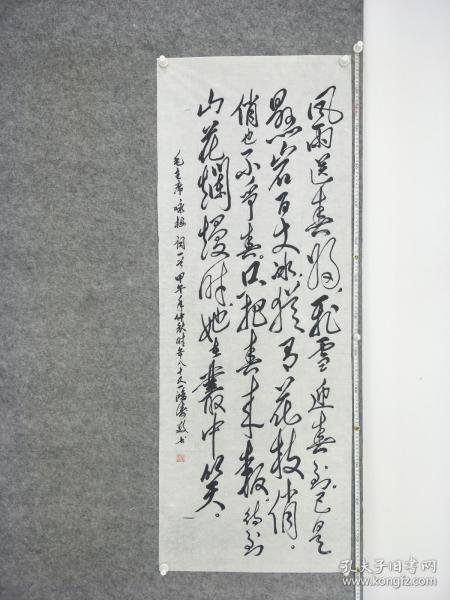 风雨送春归，飞雪迎春到。已是
悬岩百丈冰，犹有花枝俏。
俏也不争春，只把春来报。待到
山花烂熳时，她在丛中笑。
毛主席咏梅词一首甲午年仲秋时年八十又一
敬书
孔夫子旧书网
www.kongfz.com